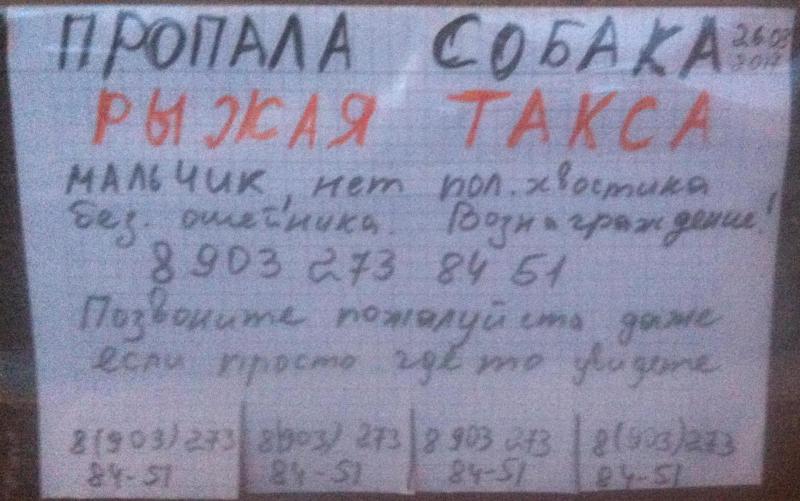 ПРОПАЛА СОБАКА 26.03
2017
РЫЖАЯ ТАКСА
МАЛЬЧИК, нет пол. хвостика
без. ошейника. Вознаграждение!
8 903 273 84 51
Позвоните пожалуйста даже
если просто где то увидете
8(903) 273
84-51
8(903) 273
84-51
8 903 273
84-51
8(903) 273
84-51